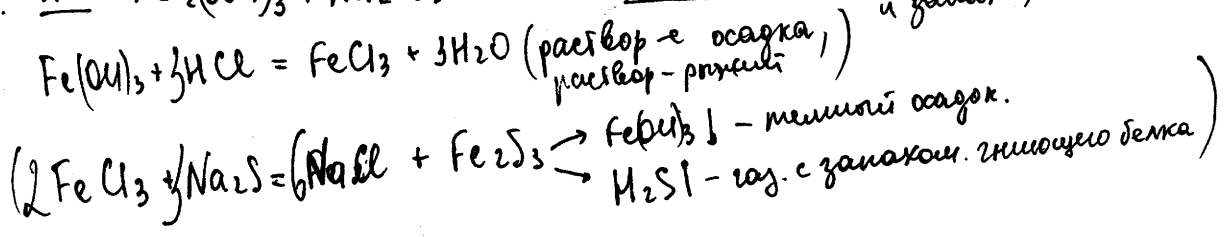 Fe(OH)3 + 3HCl = FeCl3 + 3H2O (раствор-е осадка,
раствор - рыжий)
(2FeCl3 + 3Na2S = 6NaCl + Fe2S3 → Fe(OH)3↓ - темный осадок.
→ H2S↑ - газ. с запахом. гниющего белка)